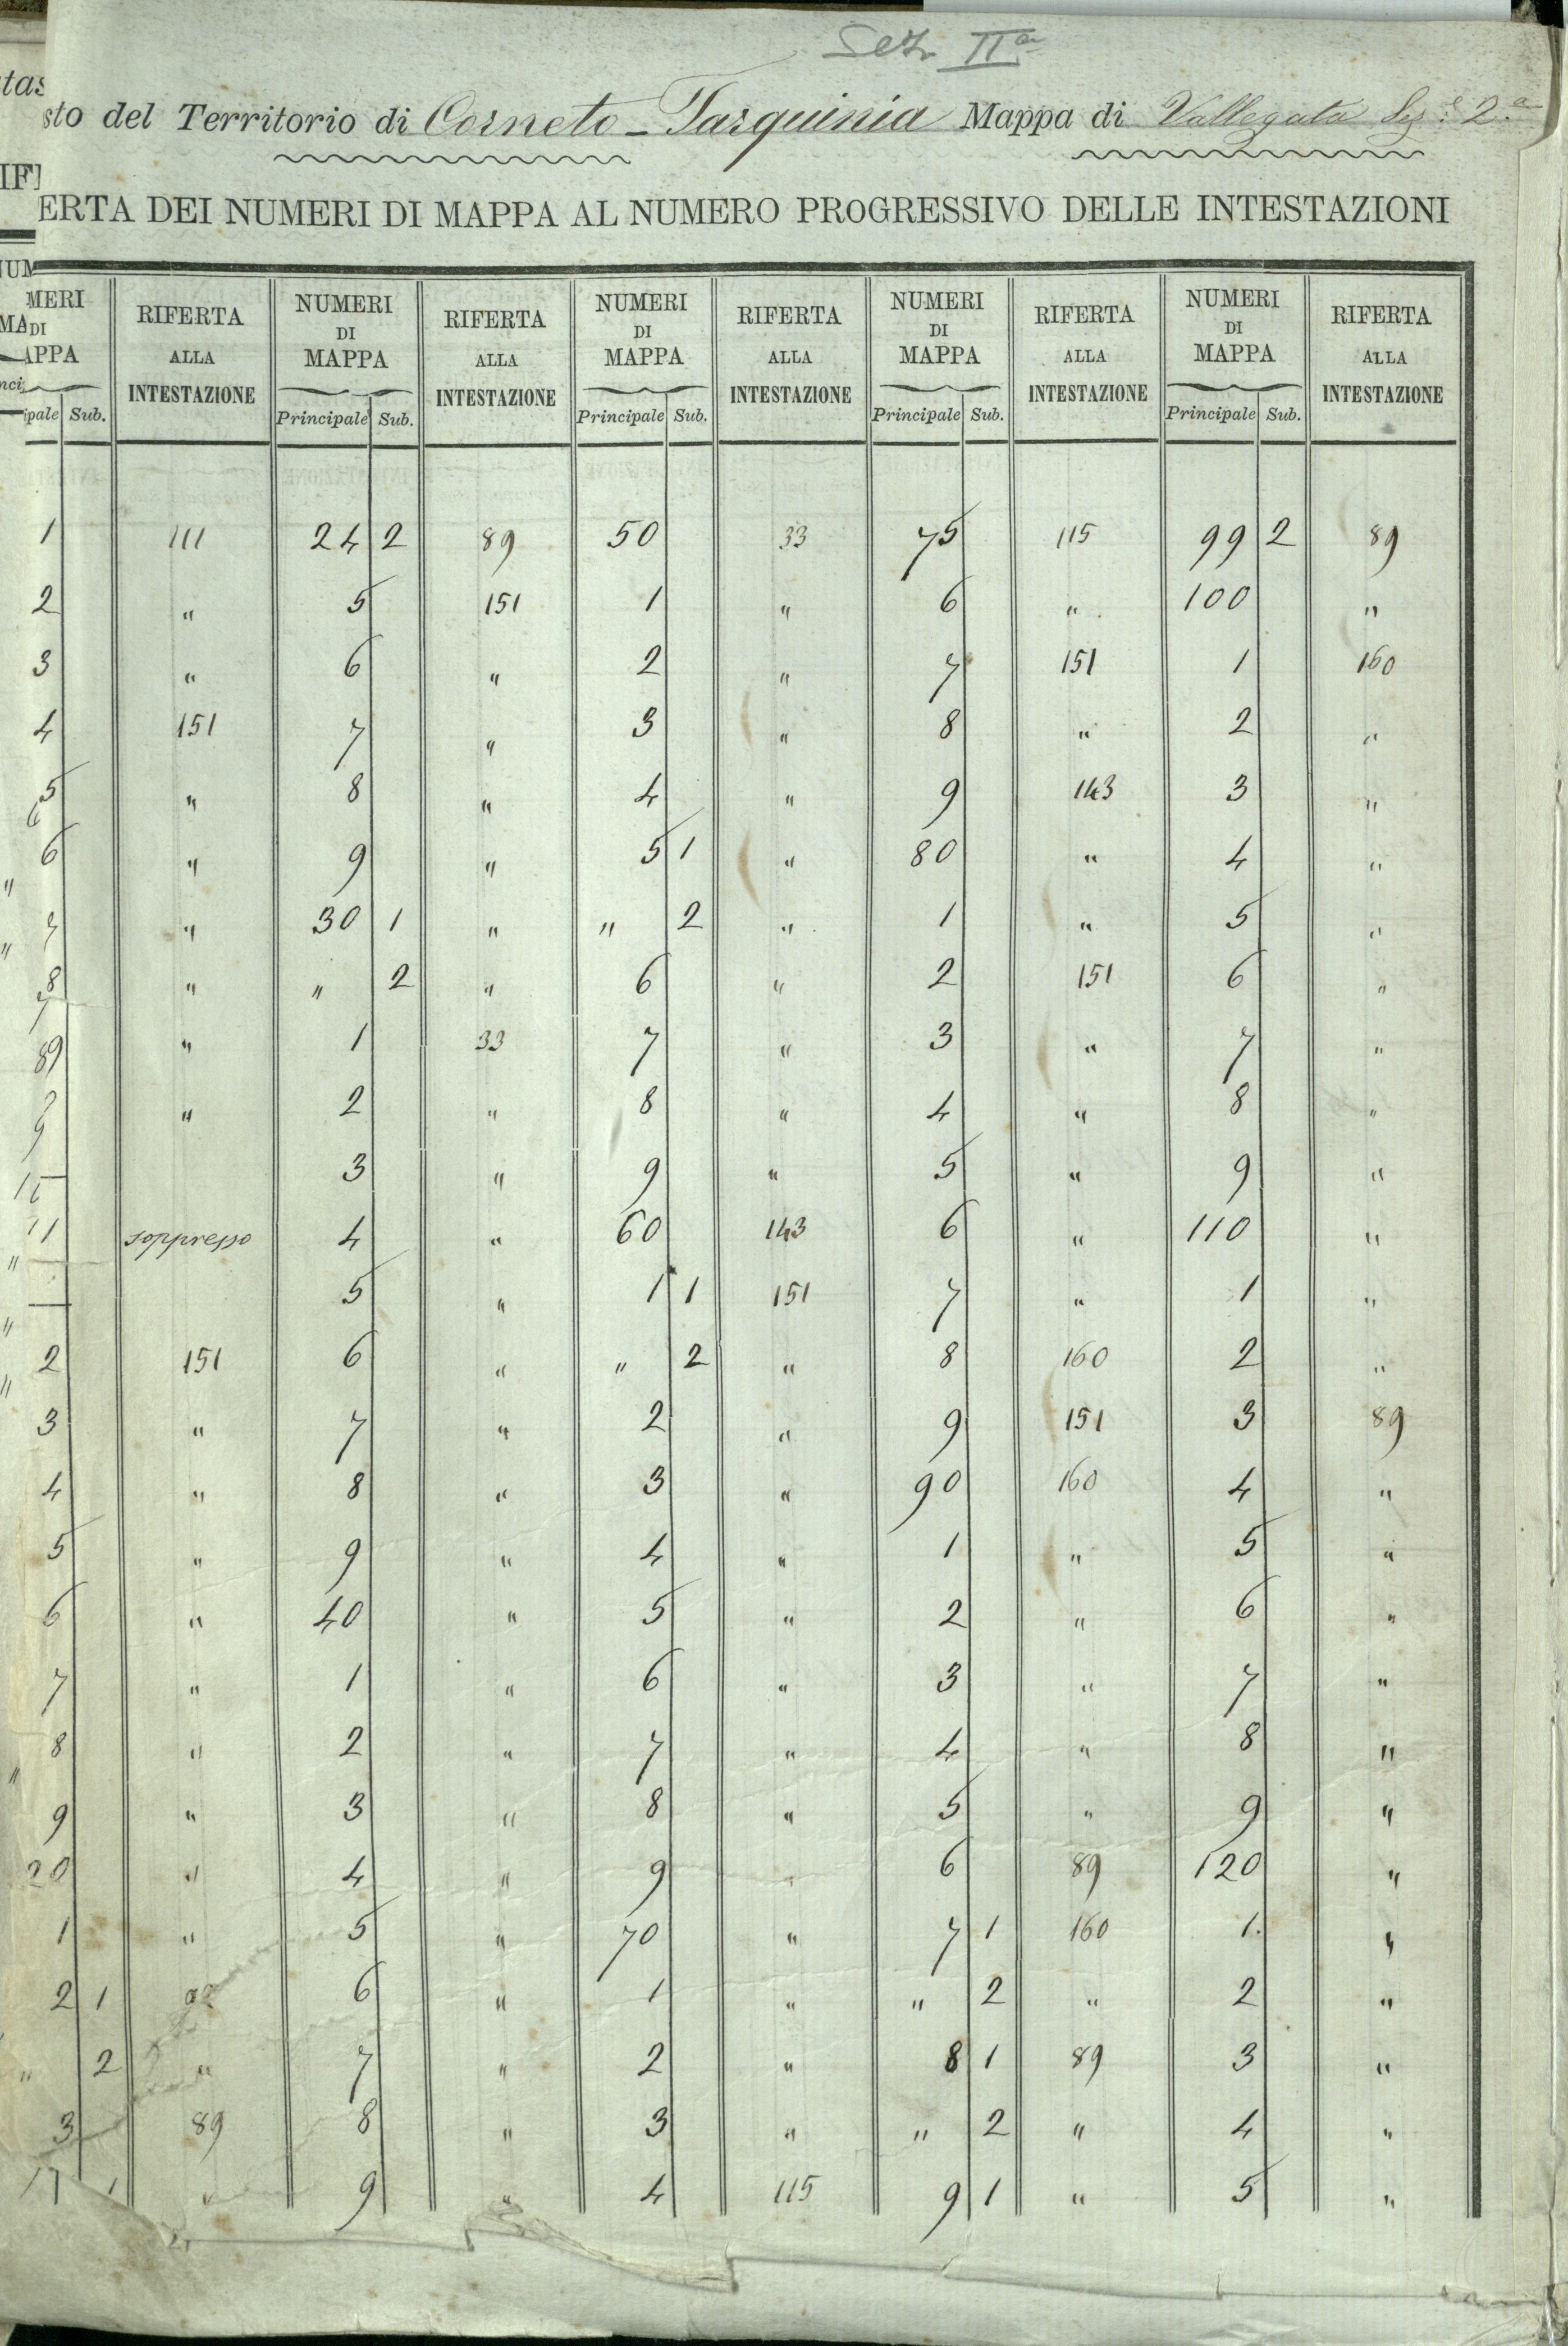 Sez IIa
sto del Territorio di Corneto - Tarquinia Mappa di Vallegata Sez.e 2.a
ERTA DEI NUMERI DI MAPPA AL NUMERO PROGRESSIVO DELLE INTESTAZIONI
MERI DI APPA RIFERTA ALLA INTESTAZIONE NUMERI DI MAPPA RIFERTA ALLA INTESTAZIONE NUMERI DI MAPPA RIFERTA ALLA INTESTAZIONE NUMERI DI MAPPA RIFERTA ALLA INTESTAZIONE NUMERI DI MAPPA RIFERTA ALLA INTESTAZIONE
ipale Sub. Principale Sub. Principale Sub. Principale Sub. Principale Sub.
1 111 24 2 89 50 33 75 115 99 2 89
2 " 5 151 1 " 6 " 100 "
3 " 6 " 2 " 7 151 1 160
4 151 7 " 3 " 8 " 2 "
5 " 8 " 4 " 9 143 3 "
6 " 9 " 5 1 " 80 " 4 "
7 " 30 1 " " 2 " 1 " 5 "
8 " " 2 " 6 " 2 151 6 "
9 " 1 33 7 " 3 " 7 "
" 2 " 8 " 4 " 8 "
3 " 9 " 5 " 9 "
11 soppresso 4 " 60 143 6 " 110 "
5 " 1 1 151 7 " 1 "
2 151 6 " " 2 " 8 160 2 "
3 " 7 " 2 " 9 151 3 89
4 " 8 " 3 " 90 160 4 "
5 " 9 " 4 " 1 " 5 "
6 " 40 " 5 " 2 " 6 "
7 " 1 " 6 " 3 " 7 "
8 " 2 " 7 " 4 " 8 "
9 " 3 " 8 " 5 " 9 "
20 " 4 " 9 " 6 89 120 "
1 " 5 " 70 " 7 1 160 1. "
2 1 6 " 1 " " 2 " 2 "
" 2 " 7 " 2 " 8 1 89 3 "
3 89 8 " 3 " " 2 " 4 "
" 9 " 4 115 9 1 " 5 "